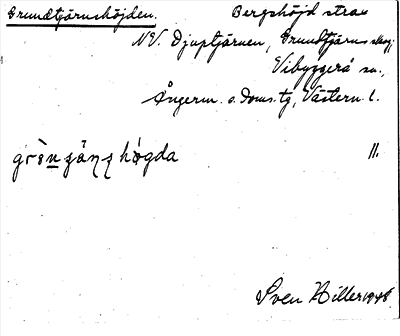 Grundtjärnshöjden. Bergshöjd strax
NV. Djuptjärnen, Grundtjärns skog,
Vibyggerå sn.,
Ångerm. s. doms. tg, Västern. l.
högda II.
Sven Hiller 1948.